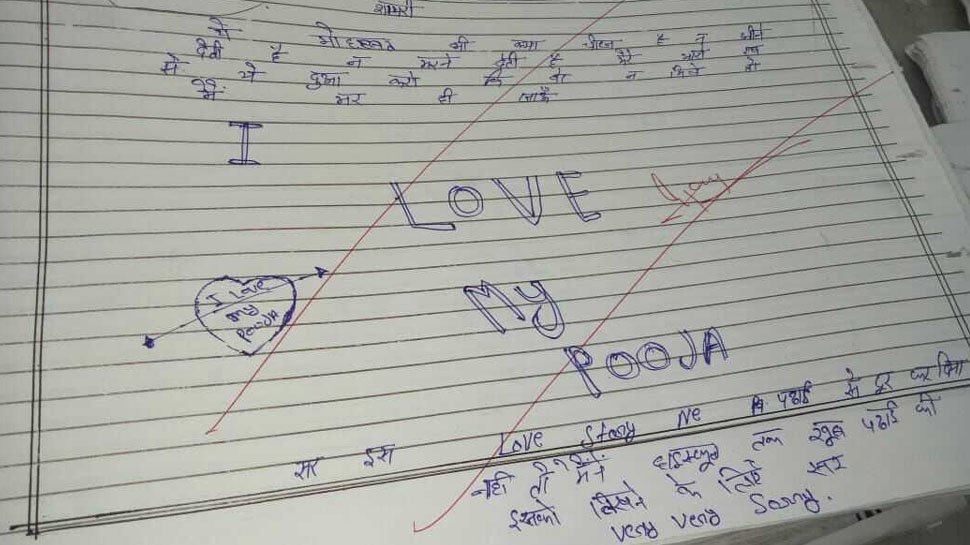 शायरी
ये मोहब्बत भी क्या चीज है न जीने
देती है न मरने देती है
से ये दुआ करो कि वो न मिले तो
मैं मर ही जाऊँ
I
LOVE
MY
POOJA
I Love
my
POOJA
सर इस Love Stoory Ne पढाई से दूर कर दिया
नही तो मैंने हाईस्कूल तक खूब पढाई की
इसको लिखने के लिए सर
very very Soory.